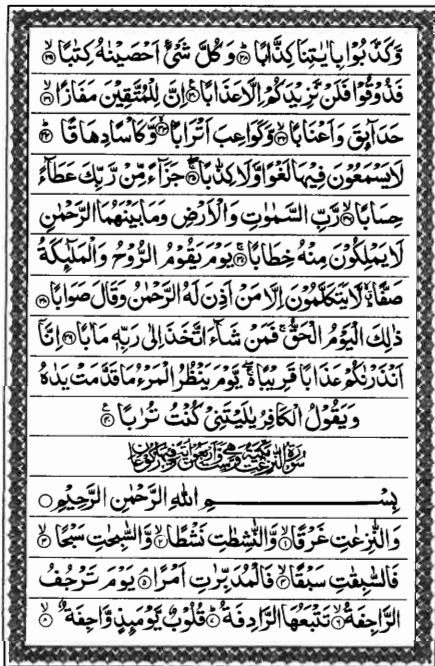 وَّكَذَّبُوْا بِاٰيٰتِنَا كِذَّابًا ﴿۲۸﴾ وَكُلَّ شَیْءٍ اَحْصَيْنٰهُ كِتٰبًا ﴿۲۹﴾
فَذُوْقُوْا فَلَنْ نَّزِيْدَكُمْ اِلَّا عَذَابًا ﴿۳۰﴾ اِنَّ لِلْمُتَّقِيْنَ مَفَازًا ﴿۳۱﴾
حَدَآئِقَ وَاَعْنَابًا ﴿۳۲﴾ وَّكَوَاعِبَ اَتْرَابًا ﴿۳۳﴾ وَّكَاْسًا دِهَاقًا ﴿۳۴﴾
لَا يَسْمَعُوْنَ فِيْهَا لَغْوًا وَّلَا كِذّٰبًا ﴿۳۵﴾ جَزَآءً مِّنْ رَّبِّكَ عَطَآءً
حِسَابًا ﴿۳۶﴾ رَّبِّ السَّمٰوٰتِ وَالْاَرْضِ وَمَا بَيْنَهُمَا الرَّحْمٰنِ
لَا يَمْلِكُوْنَ مِنْهُ خِطَابًا ﴿۳۷﴾ يَوْمَ يَقُوْمُ الرُّوْحُ وَالْمَلٰٓئِكَةُ
صَفًّا ۙ لَّا يَتَكَلَّمُوْنَ اِلَّا مَنْ اَذِنَ لَهُ الرَّحْمٰنُ وَقَالَ صَوَابًا ﴿۳۸﴾
ذٰلِكَ الْيَوْمُ الْحَقُّ ۚ فَمَنْ شَآءَ اتَّخَذَ اِلٰى رَبِّهٖ مَاٰبًا ﴿۳۹﴾ اِنَّاۤ
اَنْذَرْنٰكُمْ عَذَابًا قَرِيْبًا ۖۚ يَّوْمَ يَنْظُرُ الْمَرْءُ مَا قَدَّمَتْ يَدٰهُ
وَيَقُوْلُ الْكٰفِرُ يٰلَيْتَنِیْ كُنْتُ تُرٰبًا ﴿۴۰﴾
سُوْرَةُ النّٰزِعٰتِ مَكِّيَّةٌ وَّهِیَ سِتٌّ وَّاَرْبَعُوْنَ اٰيَةً وَّفِيْهَا رُكُوْعَانِ
بِسْمِ اللهِ الرَّحْمٰنِ الرَّحِيْمِ
وَالنّٰزِعٰتِ غَرْقًا ﴿۱﴾ وَّالنّٰشِطٰتِ نَشْطًا ﴿۲﴾ وَّالسّٰبِحٰتِ سَبْحًا ﴿۳﴾
فَالسّٰبِقٰتِ سَبْقًا ﴿۴﴾ فَالْمُدَبِّرٰتِ اَمْرًا ﴿۵﴾ يَوْمَ تَرْجُفُ
الرَّاجِفَةُ ﴿۶﴾ تَتْبَعُهَا الرَّادِفَةُ ﴿۷﴾ قُلُوْبٌ يَّوْمَئِذٍ وَّاجِفَةٌ ﴿۸﴾